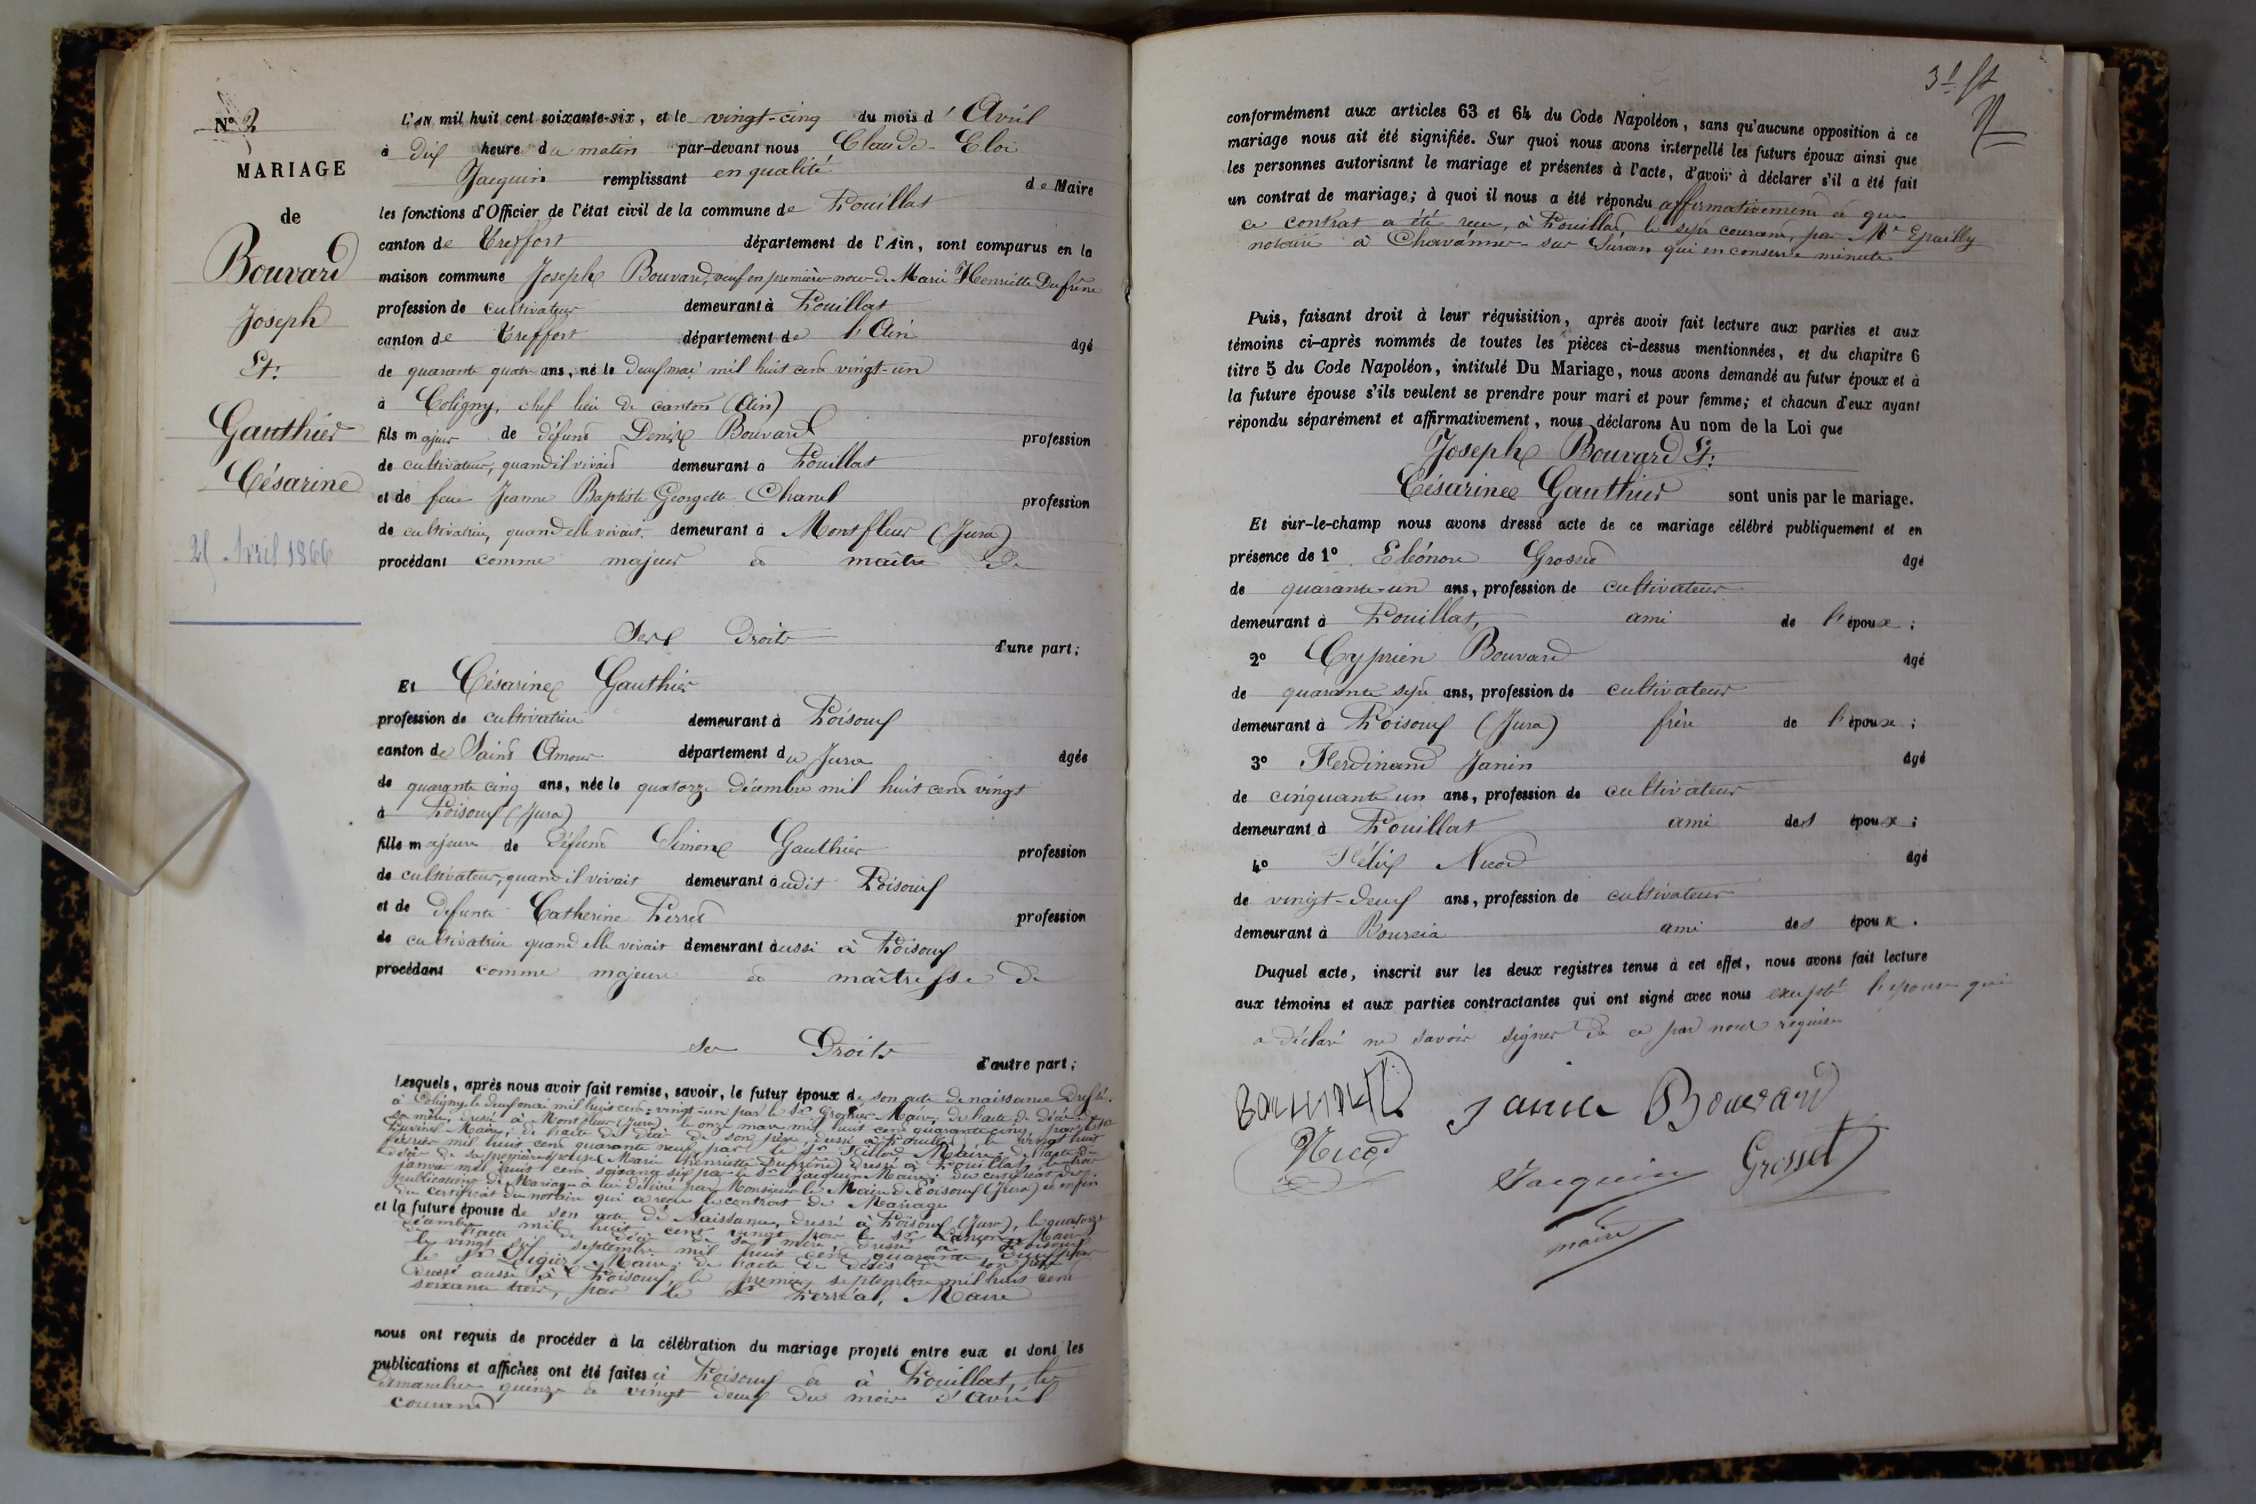 N° 2
MARIAGE
de
Bouvard
Joseph
Et
Gauthier
Césarine
25 Avril 1866
L'AN mil huit cent soixante-six, et le vingt-cinq du mois d'Avril
à dix heure du matin par-devant nous Claude Eloi
Jacquin remplissant en qualité de Maire
les fonctions d'Officier de l'état civil de la commune de Pouillat
canton de Treffort département de l'Ain, sont comparus en la
maison commune Joseph Bouvard, veuf en première noce de Marie Henriette Dufrène
profession de cultivateur demeurant à Pouillat
canton de Treffort département de l'Ain âgé
de quarante quatre ans, né le deux mai mil huit cent vingt-un
à Coligny, chef lieu de canton (Ain)
fils majeur de défunt Denis Bouvard profession
de cultivateur, quand il vivait demeurant à Pouillat
et de feue Jeanne Baptiste Georgette Chanel profession
de cultivatrice, quand elle vivait, demeurant à Montfleur (Jura)
procédant comme majeur et maître de
ses droits d'une part;
Et Césarine Gauthier
profession de cultivatrice demeurant à Poisoux
canton de Saint Amour département du Jura âgée
de quarante cinq ans, née le quatorze décembre mil huit cent vingt
à Poisoux (Jura)
fille majeure de défunt Simon Gauthier profession
de cultivateur, quand il vivait demeurant audit Poisoux
et de défunte Catherine Perret profession
de cultivatrice quand elle vivait demeurant aussi à Poisoux
procédant comme majeure et maîtresse de
ses Droits d'autre part;
Lesquels, après nous avoir fait remise, savoir, le futur époux de son acte de naissance dressé
à Coligny le deux mai mil huit cent vingt-un par le Sr Maire, de l'acte de décès de
sa mère, dressé à Montfleur (Jura) le onze mars mil huit cent quarante cinq, par le Sr
Maire, de l'acte de décès de son père, dressé à Pouillat, le vingt huit
février mil huit cent quarante neuf, par le Sr Maire, de l'acte de
décès de sa première épouse (Marie Henriette Dufrène) dressé à Pouillat, le trois
janvier mil huit cent soixante six par le Sr Jacquin Maire; du certificat des
publications de Mariage à lui délivré par Monsieur le Maire de Poisoux (Jura) et enfin
du certificat du notaire qui a reçu le contrat de Mariage
et la future épouse de son acte de Naissance, dressé à Poisoux (Jura), le quatorze
décembre mil huit cent vingt par le Sr Maire
de l'acte de décès de sa mère dressé à Poisoux
le vingt six septembre mil huit cent quarante deux par
le Sr Maire; de l'acte de décès de son père
dressé aussi à Poisoux, le premier septembre mil huit cent
soixante trois, par le Sr Perréal, Maire
nous ont requis de procéder à la célébration du mariage projeté entre eux et dont les
publications et affiches ont été faites à Poisoux et à Pouillat, les
dimanches quinze et vingt deux du mois d'avril
courant
conformément aux articles 63 et 64 du Code Napoléon, sans qu'aucune opposition à ce
mariage nous ait été signifiée. Sur quoi nous avons interpellé les futurs époux ainsi que
les personnes autorisant le mariage et présentes à l'acte, d'avoir à déclarer s'il a été fait
un contrat de mariage; à quoi il nous a été répondu affirmativement et que
ce contrat a été reçu, à Pouillat, le sept courant, par Me Grailly
notaire à Chavannes sur Suran qui en conserve minute
Puis, faisant droit à leur réquisition, après avoir fait lecture aux parties et aux
témoins ci-après nommés de toutes les pièces ci-dessus mentionnées, et du chapitre 6
titre 5 du Code Napoléon, intitulé Du Mariage, nous avons demandé au futur époux et à
la future épouse s'ils veulent se prendre pour mari et pour femme; et chacun d'eux ayant
répondu séparément et affirmativement, nous déclarons Au nom de la Loi que
Joseph Bouvard Et
Césarine Gauthier sont unis par le mariage.
Et sur-le-champ nous avons dressé acte de ce mariage célébré publiquement et en
présence de 1° Eléonore Grosset âgé
de quarante-un ans, profession de cultivateur
demeurant à Pouillat, ami de l'époux;
2° Cyprien Bouvard âgé
de quarante sept ans, profession de cultivateur
demeurant à Poisoux (Jura) frère de l'époux;
3° Ferdinand Janin âgé
de cinquante un ans, profession de cultivateur
demeurant à Pouillat ami des époux;
4° Félix Nicod âgé
de vingt-deux ans, profession de cultivateur
demeurant à Bourcia ami des époux.
Duquel acte, inscrit sur les deux registres tenus à cet effet, nous avons fait lecture
aux témoins et aux parties contractantes qui ont signé avec nous excepté l'épouse qui
a déclaré ne savoir signer de ce par nous requise
Janin Bouvard
Nicod
Jacquin Grosset
maire